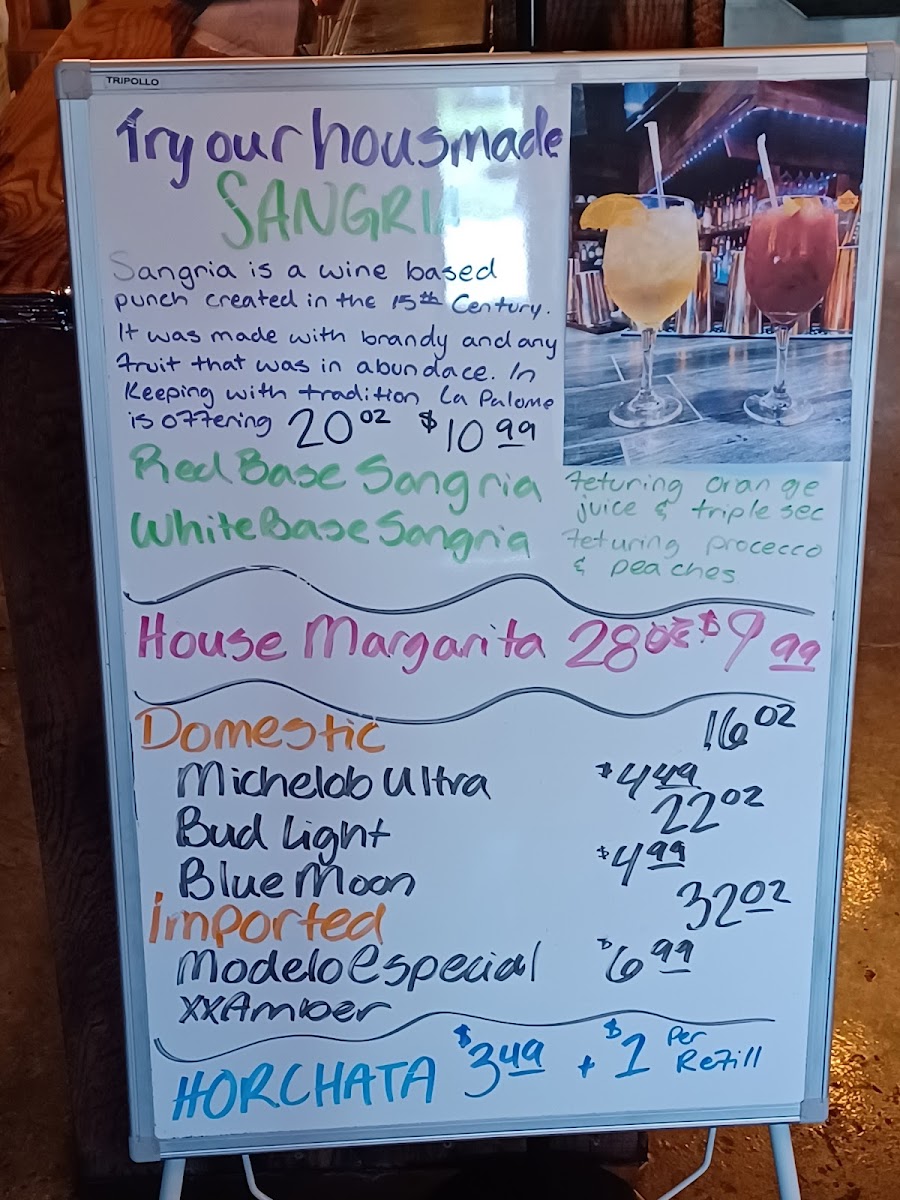 TRIPOLLO
Try our housmade
SANGRIA
Sangria is a wine based
punch created in the 15th Century.
It was made with brandy and any
fruit that was in abundace. In
Keeping with tradition La Palome
is offering 20 oz $10.99
Red Base Sangria feturing orange
juice & triple sec
White Base Sangria feturing procecco
& peaches
House Margarita 28 oz $9.99
Domestic 16 oz
Michelob Ultra $4.49
22 oz
Bud Light $4.99
Blue Moon 32 oz
Imported
Modelo Especial $6.99
XX Amber
HORCHATA $3.49 + $1 Per
Refill